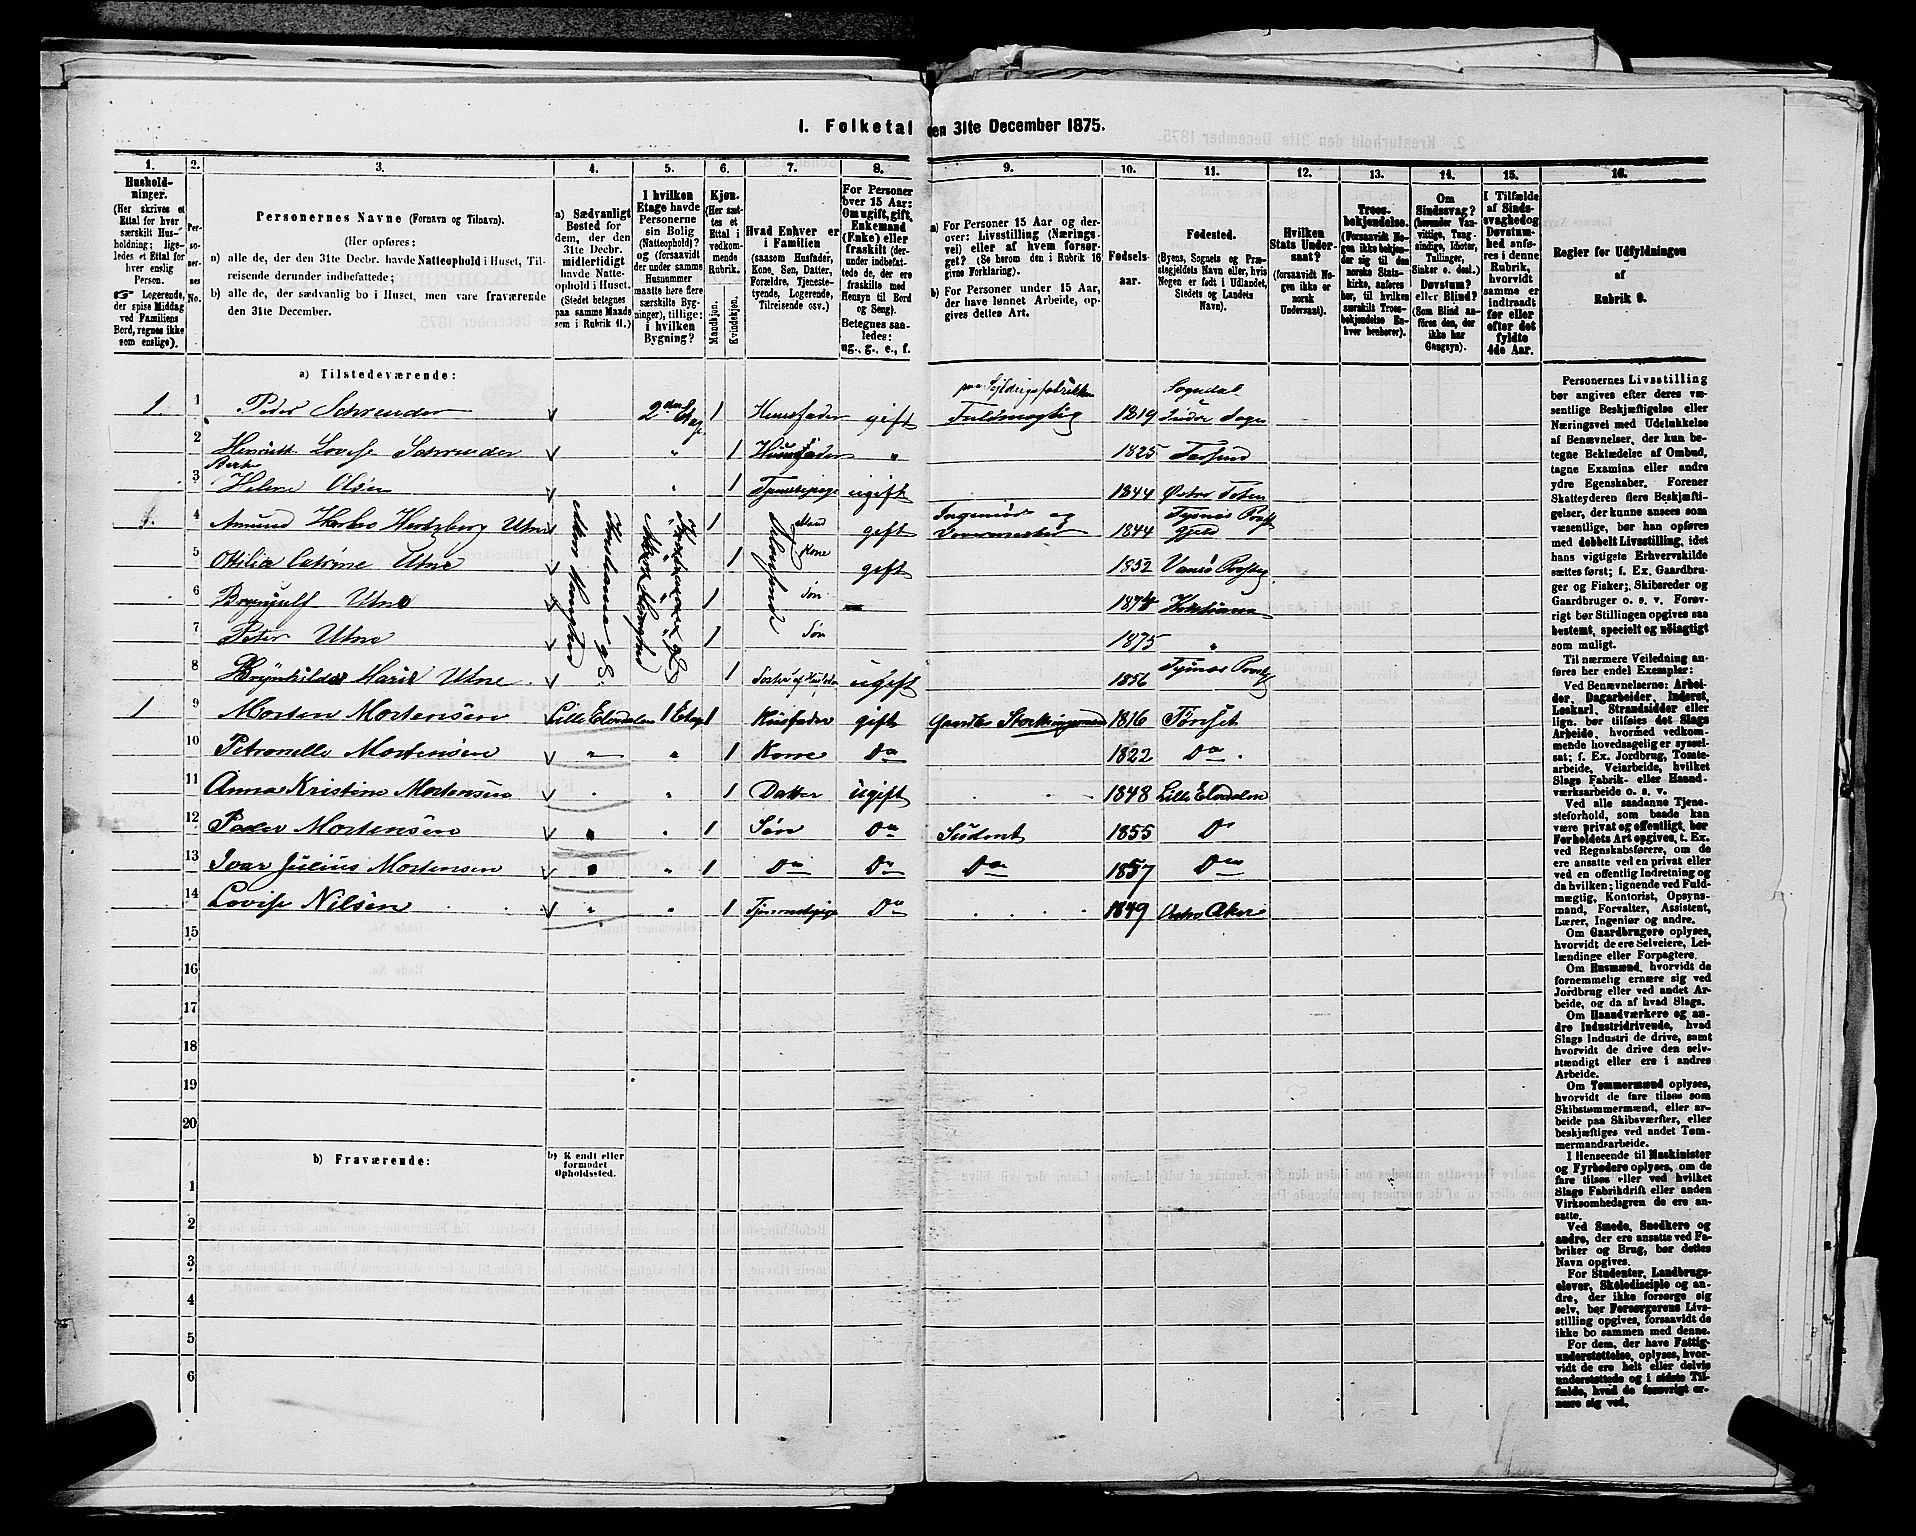 I. Folketal den 31te December 1875.
1.
2.
3.
4.
5.
6.
7.
8.
9.
10.
11.
12.
13.
14.
15.
16.
Husholdninger.
(Her skrives et
Ettal for hver
særskilt Husholdning;
ligeledes et Ettal for
hver enslig
Person.
☞ Logerende,
der spise Middag
ved Familiens
Bord, regnes ikke
som enslige).
Personernes No.
Personernes Navne (Fornavn og Tilnavn).
(Her opføres:
a) alle de, der den 31te Decbr. havde Natteophold i Huset, Tilreisende derunder indbefattede;
b) alle de, der sædvanlig bo i Huset, men vare fraværende
den 31te December.
a) Sædvanligt
Bosted for
dem, der den
31te Decbr.
midlertidigt
havde Natteophold i Huset.
(Stedet betegnes
paa samme Maade
som i Rubrik 11.)
I hvilken
Etage havde
Personerne
sin Bolig
(Natteophold)?
og (forsaavidt
der under samme
Husnummer
maatte høre flere
særskilte Bygninger), tillige:
i hvilken
Bygning?
Kjøn.
(Her sættes et
Ettal i
vedkommende
Rubrik.
Mandkjøn.
Kvindekjøn.
Hvad Enhver er
i Familien
(saasom Husfader,
Kone, Søn, Datter,
Forældre, Tjenestetyende, Logerende,
Tilreisende osv.)
For Personer
over 15 Aar:
Om ugift, gift,
Enkemand
(Enke) eller
fraskilt (derunder indbefattede de, der ere
fraskilte med
Hensyn til Bord
og Seng).
Betegnes saaledes:
ug., g., e., f.
a) For Personer 15 Aar og derover: Livsstilling (Næringsvei) eller af hvem forsørget? (Se herom den i Rubrik 16
givne Forklaring).
b) For Personer under 15 Aar,
der have lønnet Arbeide, opgives dettes Art.
Fødselsaar.
Fødested.
(Byens, Sognets og Præstegjeldets Navn eller, hvis
Nogen er født i Udlandet,
Stedets og Landets
Navn).
Hvilken
Stats Undersaat?
(forsaavidt Nogen ikke er
norsk
Undersaat).
Troesbekjendelse.
(Forsaavidt Nogen ikke bekjender sig til den
norske Statskirke, anføres
her, til hvilken
særskilt Troesbekjendelse Enhver henhører).
Om
Sindssvag?
(herunder Vanvittige, Tungsindige, Idioter,
Tullinger,
Sinker o. desl.)
Døvstum?
eller Blind?
(Som Blind anføres den, der
ikke har
Gangsyn).
I Tilfælde
af Sindssvaghed og
Døvstumhed anføres i denne
Rubrik,
hvorvidt
samme er
indtraadt
før eller
efter det
fyldte
4de Aar.
Regler før Udfyldningen
af
Rubrik 9.
a) Tilstedeværende:
1 1 Peder Schreuder 2den Etage 1 Husfader gift paa Fuldmægtig 1819 Sogndal Indre Sogn
2 Henriett Lovise Schreuder " 1 " 1825 Farsund
3 Helene Olsen " 1 ugift 1844 Østre Toten
4 Amund Harbo Hertzberg Utne 1 Mand gift Ingeniør og 1844 Tysnæs Præstegjeld
5 Othilia Catrine Utne 1 Kone gift 1852 Vansø
6 Brynjulf Utne 1 Søn 1874 Kristiania
7 Peter Utne 1 Søn 1875 "
8 Brynhilda Marie Utne 1 ugift 1856 Tysnæs
1 9 Morten Mortensen Lille Elvedalen 1 Etage 1 Husfader gift Gaardbr Storthingsmand 1816 Tønset
10 Petronelle Mortensen " " 1 Kone Do 1822 Do
11 Anna Kristine Mortensen " " 1 Datter ugift 1848 Lille Elvdalen
12 Peder Mortensen " " 1 Søn Do Student 1855 Do
13 Ivar Julius Mortensen " " 1 Do Do Do 1857 Do
14 Lovise Nilsen " " 1 Tjenestepige Do 1849 Vestre Aker
15
16
17
18
19
20
b) Fraværende:
b) Kjendt eller
formodet
Opholdssted.
1
2
3
4
5
6
Personernes Livsstilling
bør angives efter deres væsentlige Beskjæftigelse eller
Næringsvei med Udelukkelse
af Benævnelser, der kun betegne Beklædelse af Ombud,
tagne Examina eller andre
ydre Egenskaber. Forener
Skatteyderen flere Beskjæftigelser, der kunne ansees som
væsentlige, bør han opføres
med dobbelt Livsstilling, idet
hans vigtigste Erhvervskilde
sættes først; f. Ex. Gaardbruger og Fisker; Skibsreder og
Gaardbruger o. s. v. Forøvrigt bør Stillingen opgives saa
bestemt, specielt og nøiagtigt
som muligt.
Til nærmere Veiledning anføres her endel Exempler:
Ved Benævnelserne: Arbeider, Dagarbeider, Inderst,
Løskarl, Strandsidder eller
lign. bør tilføies det Slags
Arbeide, hvormed vedkommende hovedsagelig er sysselsat; f. Ex. Jordbrug, Tomtearbeide, Veiarbeide, hvilket
Slags Fabrik- eller Haandværksarbeide o. s. v.
Ved alle saadanne Tjenesteforhold, som baade kan
være privat og offentligt, bør
Forholdets Art opgives, t. Ex.
ved Regnskabsførere, om de
ere ansatte ved en privat eller
ved en offentlig Indretning og
da hvilken; lignende ved Fuldmægtig, Kontorist, Opsynsmand, Forvalter, Assistent,
Lærer, Ingeniør og andre.
Om Gaardbrugere oplyses,
hvorvidt de ere Selveiere, Leilændinge eller Forpagtere.
Om Husmænd, hvorvidt de
fornemmelig ernære sig ved
Jordbrug eller ved andet Arbeide, og da af hvad Slags.
Om Haandværkere og andre Industridrivende, hvad
Slags Industri de drive, samt
hvorvidt de drive den selvstændigt eller ere i andres
Arbeide.
Om Tømmermænd oplyses,
hvorvidt de fare tilsøs som
Skibstømmermænd, eller arbeide paa Skibsværfter, eller
beskjæftiges ved andet Tømmermandsarbeide.
I Henseende til Maskinister
og Fyrbødere oplyses, om de
fare tilsøs eller ved hvilket
Slags Fabrikdrift eller anden
Virksomhedsgren de ere ansatte.
Ved Smede, Snedkere og
andre, der ere ansatte ved Fabriker og Brug, bør dettes
Navn opgives.
For Studenter, Landbrugselever, Skoledisciple og andre, der ikke forsørge sig
selv, bør Forsørgerens Livsstilling opgives, forsaavidt de
ikke bo sammen med denne.
For dem, der have Fattigunderstøttelse, oplyses, hvorvidt de ere helt eller delvis
understøttede og i sidste Tilfælde, hvad de forøvrigt ernære sig ved.